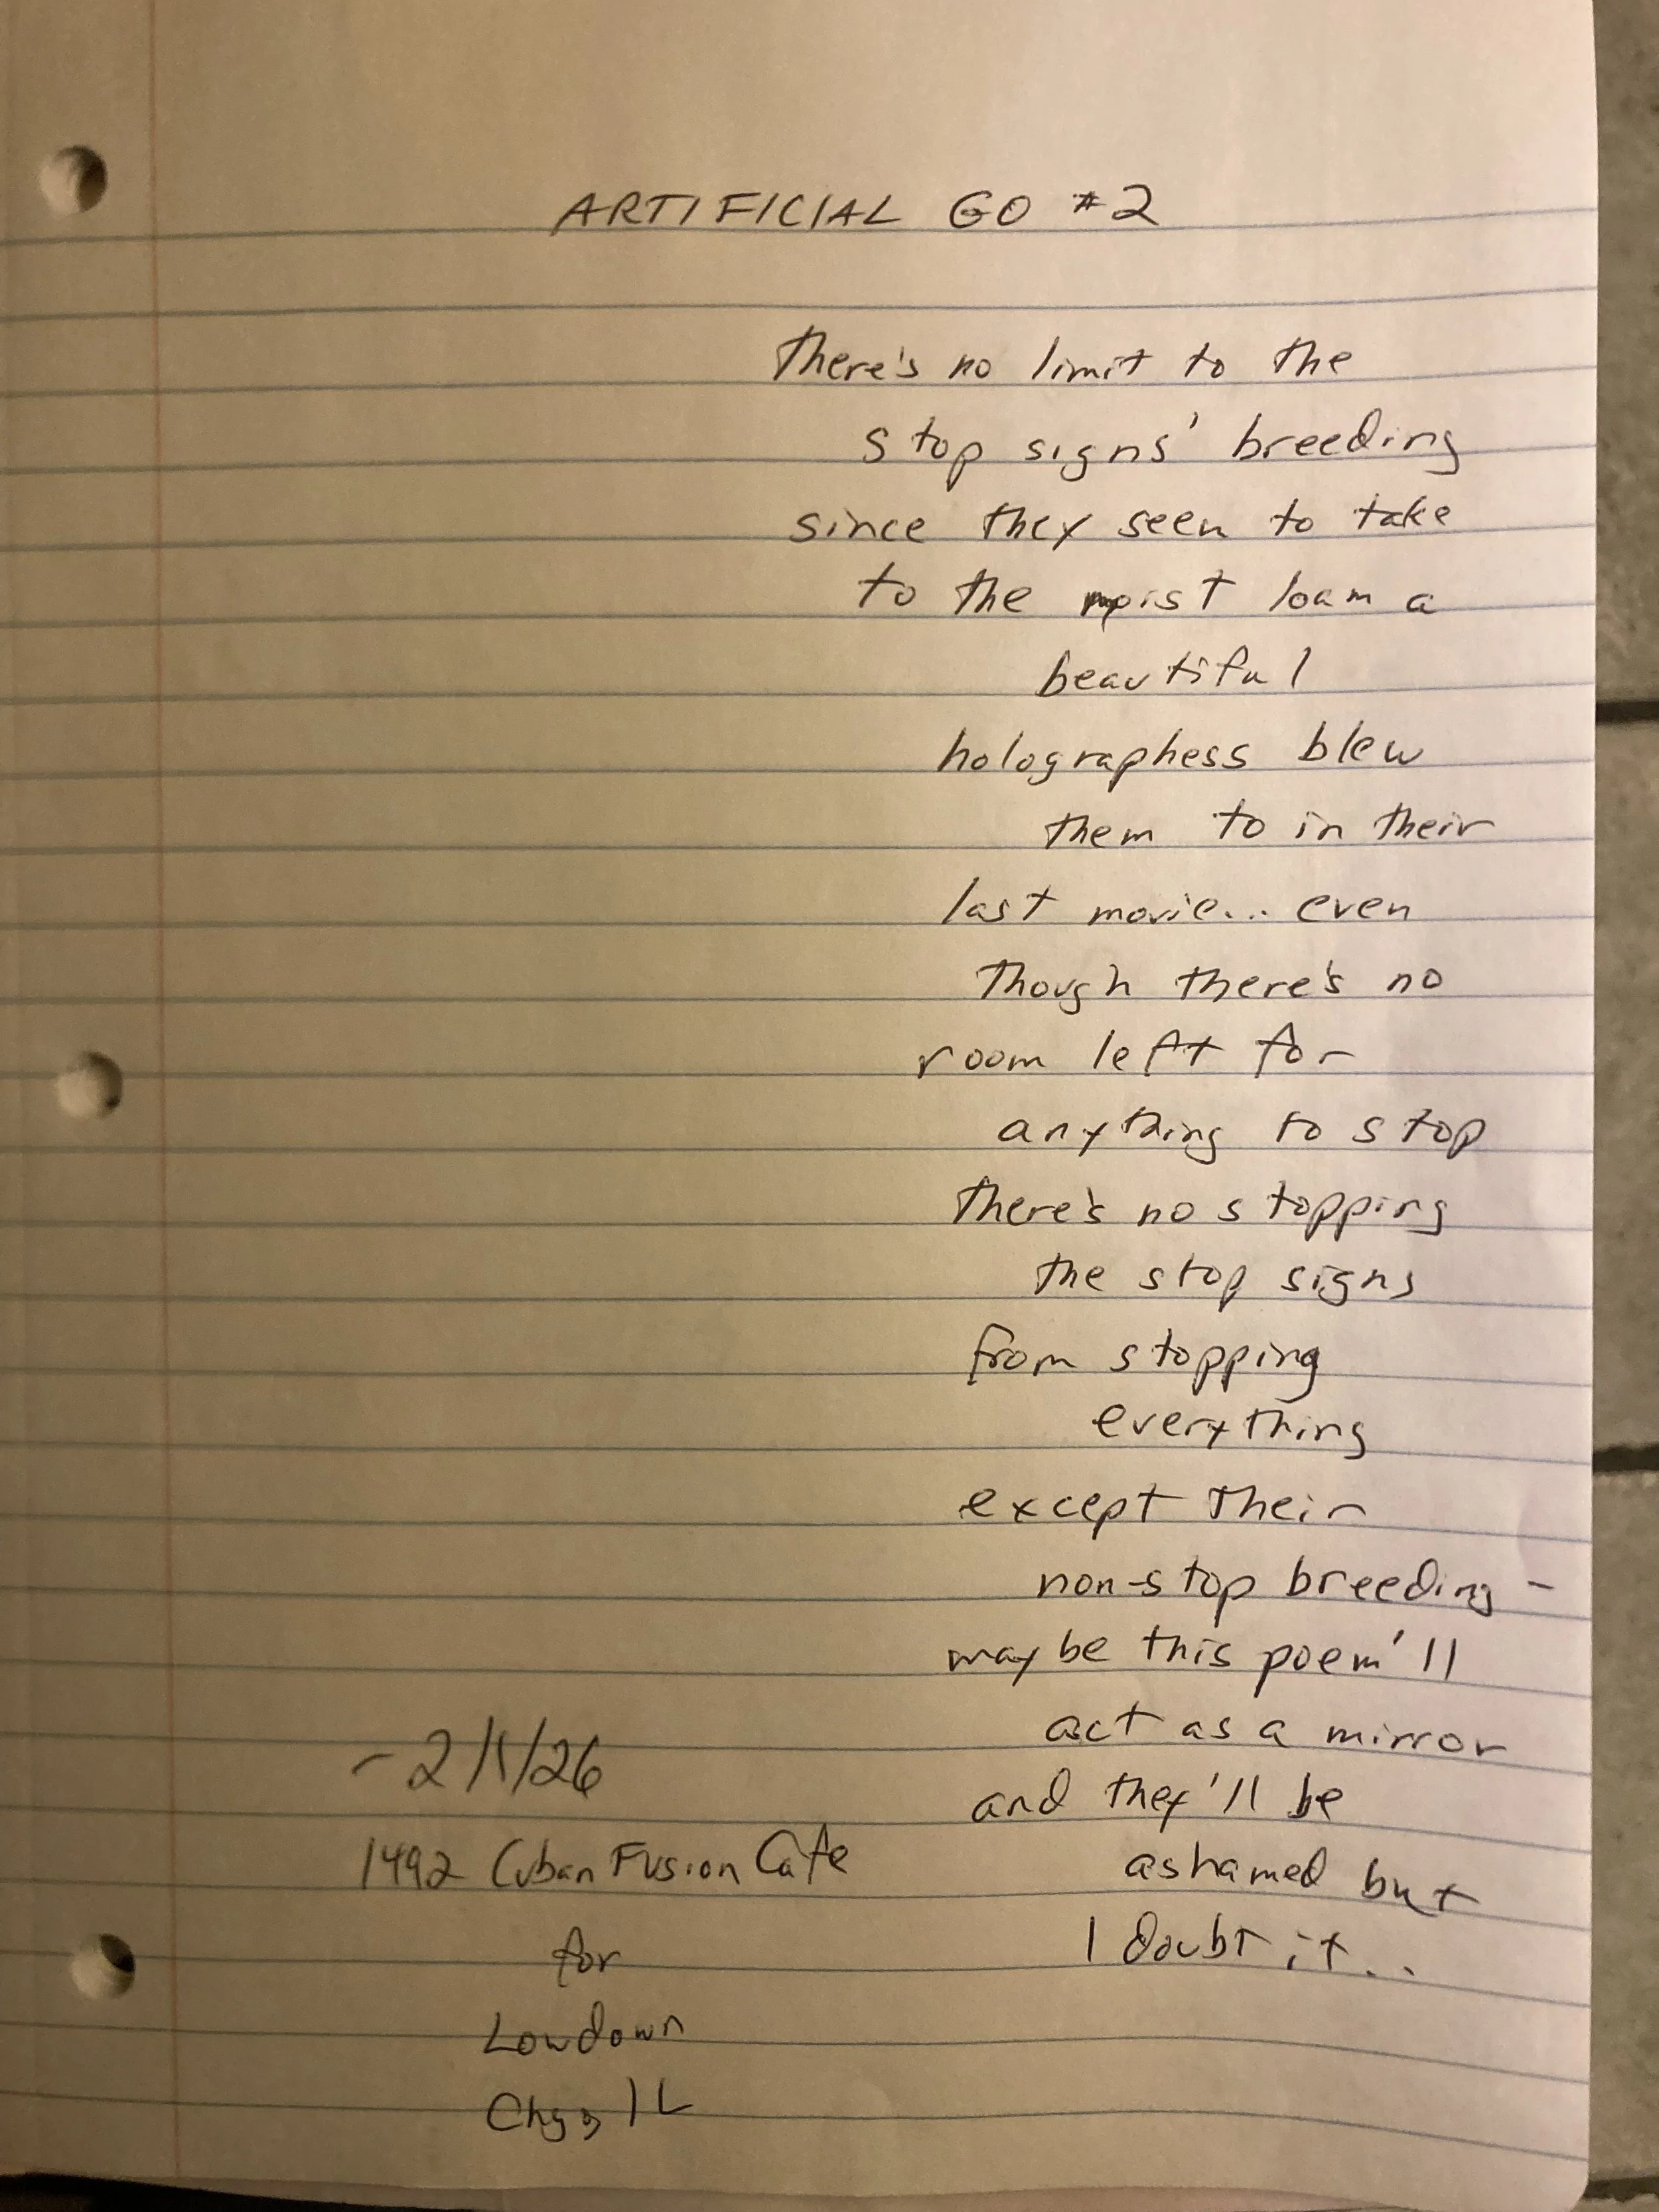 ARTIFICIAL GO #2
there's no limit to the
stop signs' breeding
since they seen to take
to the moist loam a
beautiful
holographess blew
them to in their
last movie... even
though there's no
room left for
anything to stop
there's no stopping
the stop signs
from stopping
everything
except their
non-stop breeding -
maybe this poem'll
act as a mirror
and they'll be
ashamed but
I doubt it..
- 2/1/26
1492 Cuban Fusion Cafe
for
Lowdown
Chgo IL